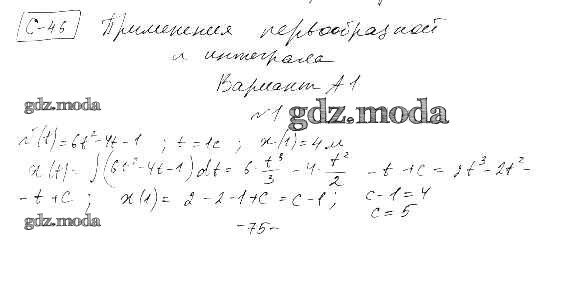 С-46 Применения первообразной
и интеграла
Вариант А1
gdz.moda
№1 gdz.moda
v(t)=6t²-4t-1 ; t=1c ; x(1)=4м
x(t)=∫(6t²-4t-1)dt=6·t³/3-4·t²/2 -t+c=2t³-2t²-
-t+c ; x(1)=2-2-1+c=c-1 ; c-1=4
c=5
gdz.moda
-75-